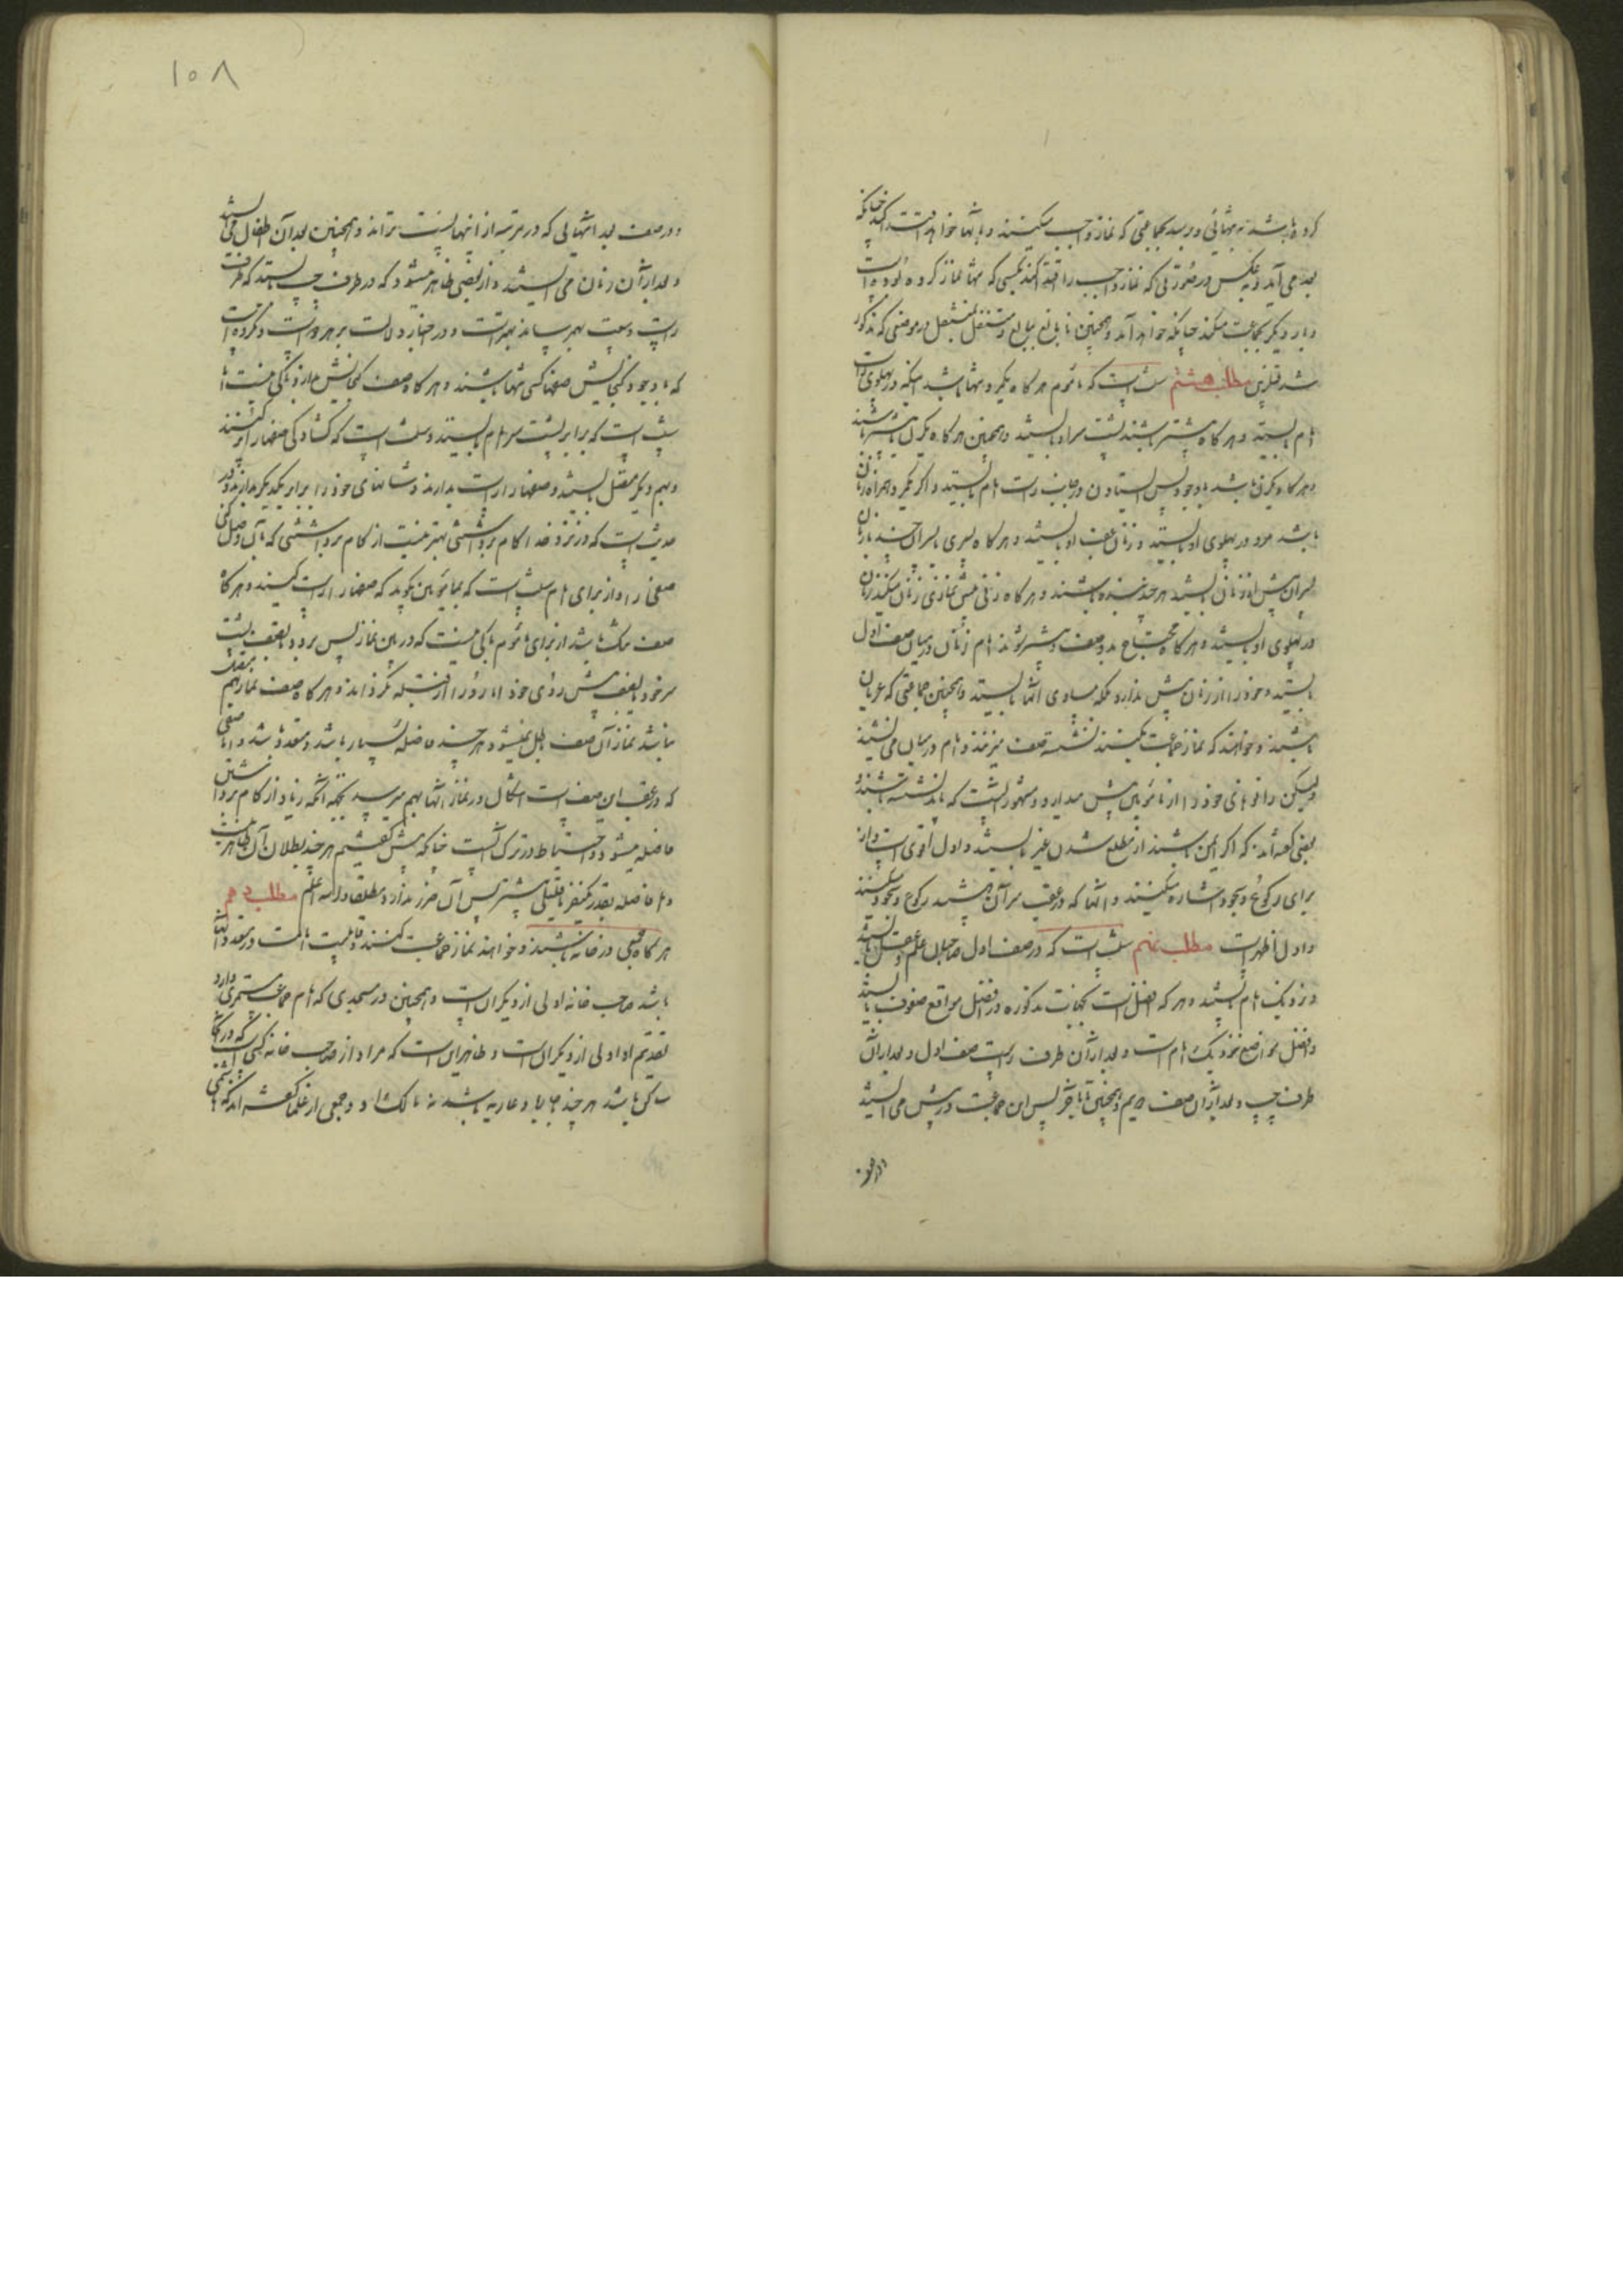 کرده باشد به تنهائی و برسد بجماعتی که نماز واجب میکنند و بآنها خواهد اقتدا کند چنانکه
بعد می آید و بعکس در صورتی که نماز واجب را اقتدا کند بکسی که تنها نماز کرده بوده است
و بار دیگر بجماعت میکند چنانکه خواهد آمد و همچنین نابالغ ببالغ و متنفل بمتنفل در موضعی که مذکور
شد قبل ازین مطلب هشتم سنت است که مأموم هرگاه یک مرد تنها باشد اینکه در پهلوی راست
امام بایستد و هرگاه بیشتر باشند پشت سر او بایستند و همچنین هرگاه یک زن یا بیشتر باشند
و هرگاه یک زن باشد با وجود پس ایستادن در جانب راست امام بایستد و اگر یک مرد و همراه زنان
باشد مرد در پهلوی او بایستد و زنان عقب او بایستند و هرگاه پسری یا پسران چند با زنان
پسران پیش از زنان بایستند هر چند بنده باشند و هرگاه زنی پیش نمازی زنان میکند زنان
در پهلوی او بایستند و هرگاه محتاج بدو صف و بیشتر شوند امام زنان در میان صف اول
بایستد و خود را از زنان پیش ندارد بلکه مساوی آنها بایستد و همچنین جماعتی که عریان
باشند و خواهند که نماز جماعت بکنند نشسته صف میزنند و امام در میان می نشیند
لیکن زانوهای خود را از مأمومین پیش میدارد و مشهور آنست که باید نشسته باشند و
بعضی گفته اند که اگر ایمن باشند از مطلع شدن غیر بایستند و اول اقوی است و از
برای رکوع و سجود اشاره میکنند و آنها که در عقب سر آن باشند رکوع و سجود میکنند
و اول اظهر است مطلب نهم سنت است که در صف اول صاحبان علم و عقل بایستند
و نزدیک امام بایستند و هر که افضل است بجهات مذکوره در افضل مواقع صفوف بایستد
و افضل مواضع نزدیک امام است و بعد از آن طرف راست صف اول و بعد از آن
طرف چپ و بعد از آن صف دویم و همچنین تا بآخر پس این جماعت در پیش می ایستند
و در صف
۱۰۸
و در صف بعد آنهائی که در مرتبه از اینها پست تراند و همچنین بعد از آن اطفال می ایستند
و بعد از آن زنان می ایستند و از بعضی ظاهر میشود که در طرف چپ بایستد که طرف
راست وسعت بهم رساند بهتر است و در اخبار دلالت بر هر دو هست و مکروه است
که با وجود گنجایش صفها کسی تنها بایستد و هرگاه صف گنجایش ندارد باکی نیست اما
سنت است که برابر پشت سر امام بایستد و سنت است که گشادگی صفها را پر کنند
و بهم دیگر متصل بایستند و صفها را راست بدارند و شانهای خود را برابر یکدیگر بدارند و در
حدیث است که در نزد خدا گام برداشتنی بهتر نیست از گام برداشتنی که بآن وصل کنی
صفی را و از برای امام سنت است که بمأمومین بگوید که صفها را راست کنند و هرگاه
صف تنگ باشد از برای مأموم باکی نیست که در بین نماز پس برود بعقب پشت
سر خود یا بصف پیش روی خود اما رو را از قبله نگرداند و هرگاه صف نماز بهم متصل
نباشد نماز آن صف باطل نمیشود هر چند فاصله بسیار باشد و متعدد باشد و اما صفی
که در عقب این صف است اشکال در نماز آنها بهم میرسد بجهت آنکه زیاد از گام برداشتن
فاصله میشود و احتیاط در ترک آنست چنانکه پیش گفتیم هر چند بطلان آن ظاهر نیست
و اما فاصله بقدر یکنفر یا قلیلی بیشتر پس آن ضرر ندارد مطلقا و الله اعلم مطلب دهم
هرگاه جمعی در خانه باشند و خواهند نماز جماعت کنند و قابلیت امامت در متعدد آنها
باشد صاحب خانه اولی از دیگران است و همچنین در مسجدی که امام جماعت مستمری دارد
تقدیم او اولی از دیگران است و ظاهر این است که مراد از صاحب خانه کسی است که در آنجا
ساکن باشد هر چند باجاره یا عاریه باشد نه مالک او و جمعی از علما گفته اند که هاشمی